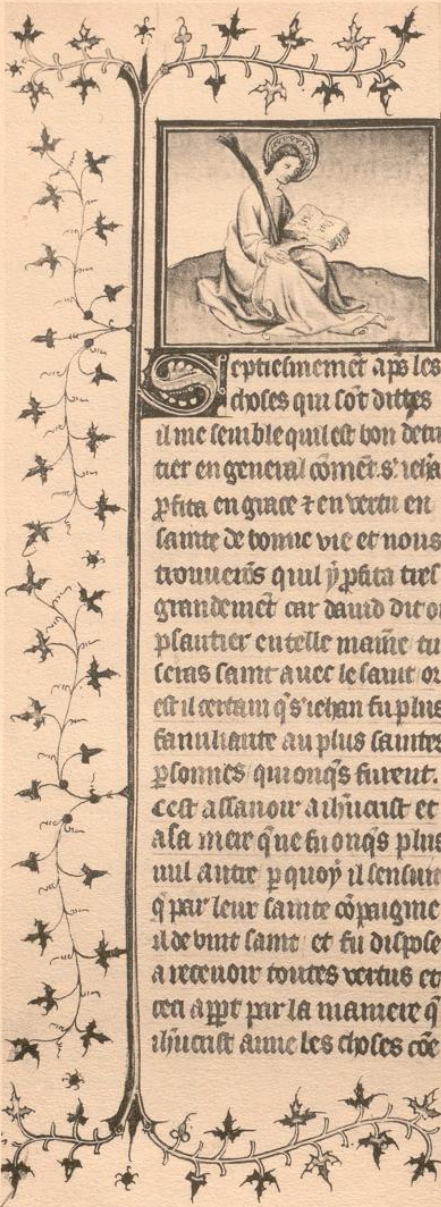 Septiesmemēt ap̄s les
choses qui sōt dittes
il me semble quil est bon de
tier en general cōmēt .s. iehā
ꝓfita en grace ⁊ en vertu en
sainte de bonne vie et nous
trouuerōs quil y ꝓfita tres
grandemēt car dauid dit
psautier en telle maīe tu
seras saint auec le saint or
est il certain q̄ s' iehan fu plus
familiaire au plus saintes
ꝑsonnes qui onq̄s furent.
cest assauoir a ihūcrist et
a sa mere q̄ ne fu onq̄s plus
nul autre ꝑ quoy il sensuit
q̄ par leur sainte cōpaignie
il devint saint et fu dispose
a recevoir toutes vertus et
ceci app̄t par la maniere q̄
ihūcrist aime les choses cōe